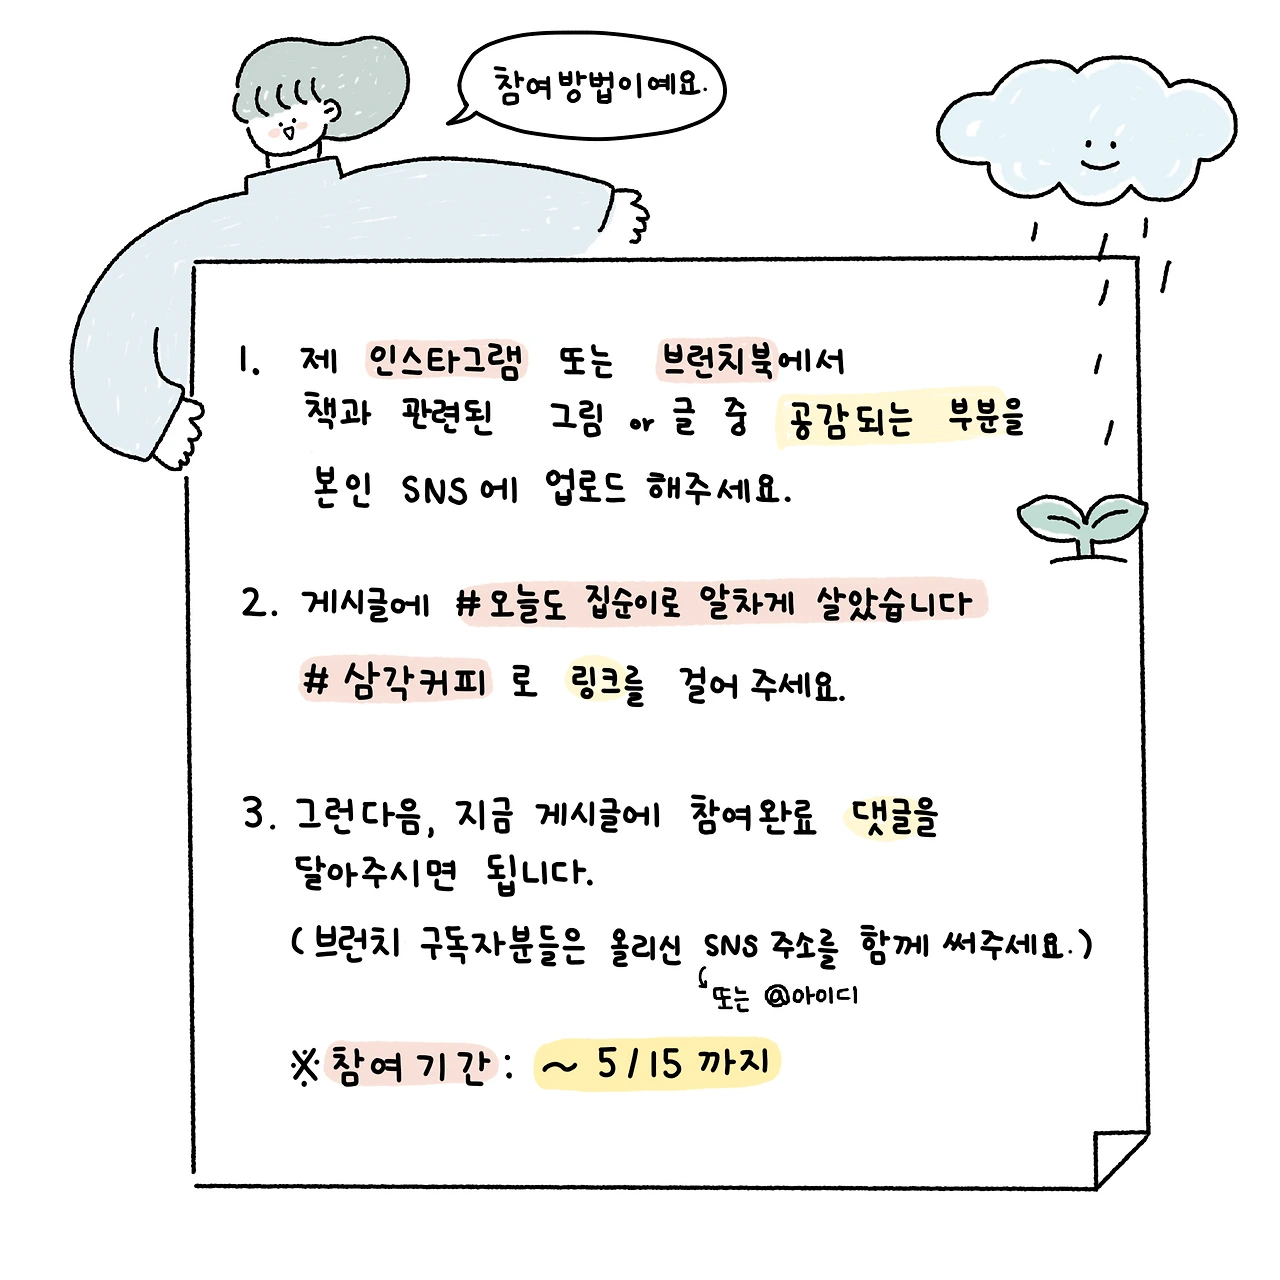 참여방법이예요.
1. 제 인스타그램 또는 브런치북에서
책과 관련된 그림 or 글 중 공감되는 부분을
본인 SNS에 업로드 해주세요.
2. 게시글에 #오늘도 집순이로 알차게 살았습니다
# 삼각커피 로 링크를 걸어 주세요.
3. 그런다음, 지금 게시글에 참여완료 댓글을
달아주시면 됩니다.
(브런치 구독자분들은 올리신 SNS 주소를 함께 써주세요.)
또는 @아이디
※참여기간: ~ 5/15 까지